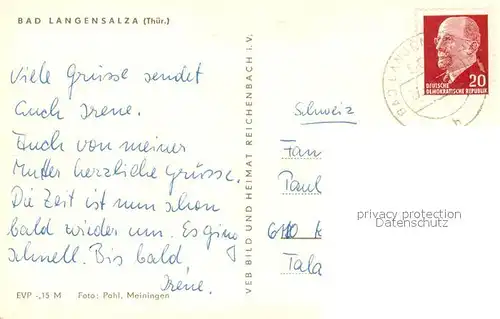 BAD LANGENSALZA (Thür.)
Viele Grüsse sendet
Euch Irene.
Auch von meiner
Mutter herzliche Grüsse.
Die Zeit ist nun schon
bald wieder um. Es ging
schnell. Bis bald
Irene.
EVP -,15 M Foto: Pahl, Meiningen
VEB BILD UND HEIMAT REICHENBACH i. V.
20
DEUTSCHE
DEMOKRATISCHE REPUBLIK
BAD LANGEN
Schweiz
Fam
Paul
privacy protection
Datenschutz
Tala